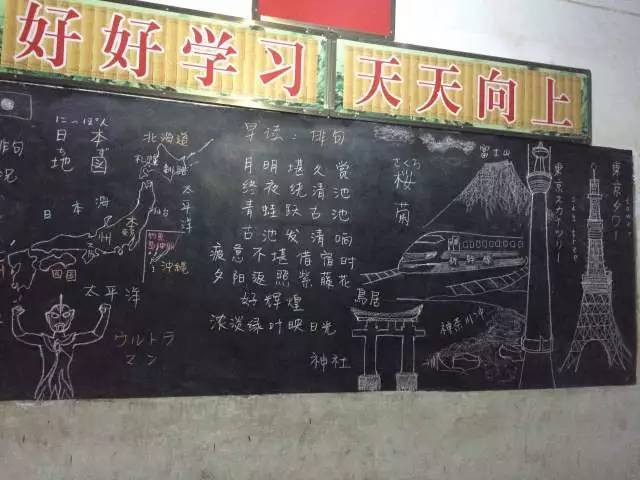 好好学习 天天向上
にっぽん
日本
地図
北海道
札幌
釧路
太平洋
日本海
本州
四国
沖縄
太平洋
ウルトラ
マン
早读：俳句
月明堪久赏
终夜绕清池
青蛙跃古池
古池发清响
疲惫不堪借宿时
夕阳返照紫藤花
好辉煌
浓淡绿叶映日光
神社
さくら
桜
菊
富士山
鳥居
神奈川沖
東京スカイツリー
東京タワー